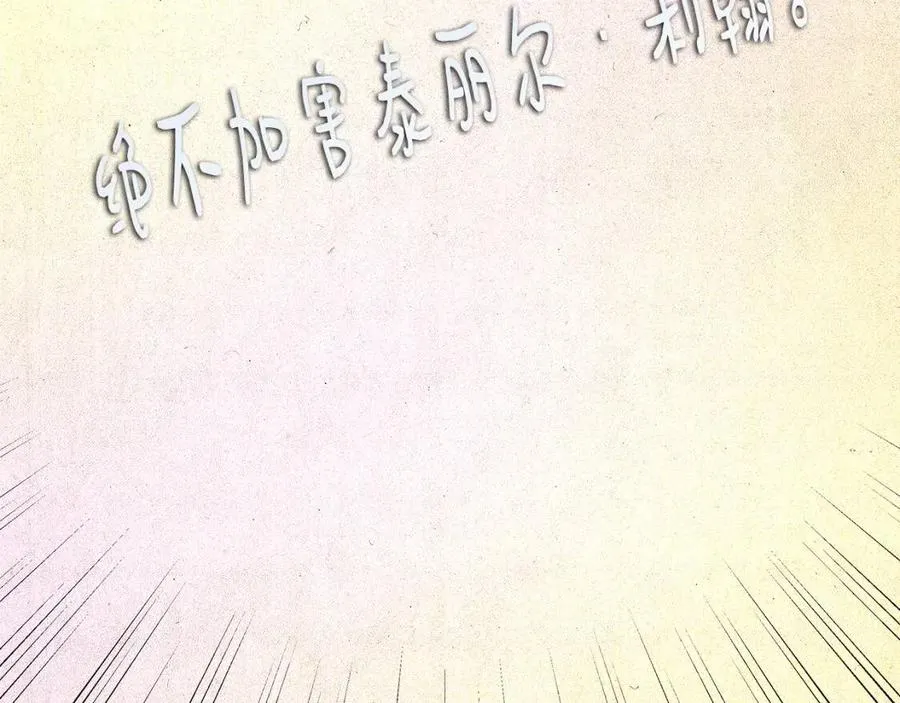 绝不加害泰丽尔·利翱。